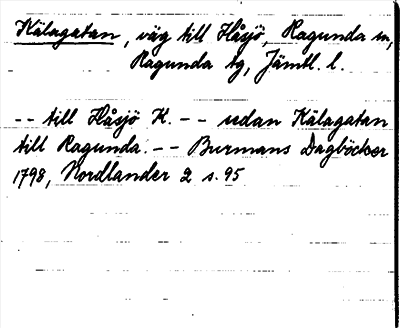 Kälagatan, väg till Håsjö, Ragunda sn,
Ragunda tg, Jämtl. l.
-- till Håsjö K. -- sedan Kälagatan
till Ragunda. -- Burmans Dagböcker
1798, Nordlander 2 s. 95